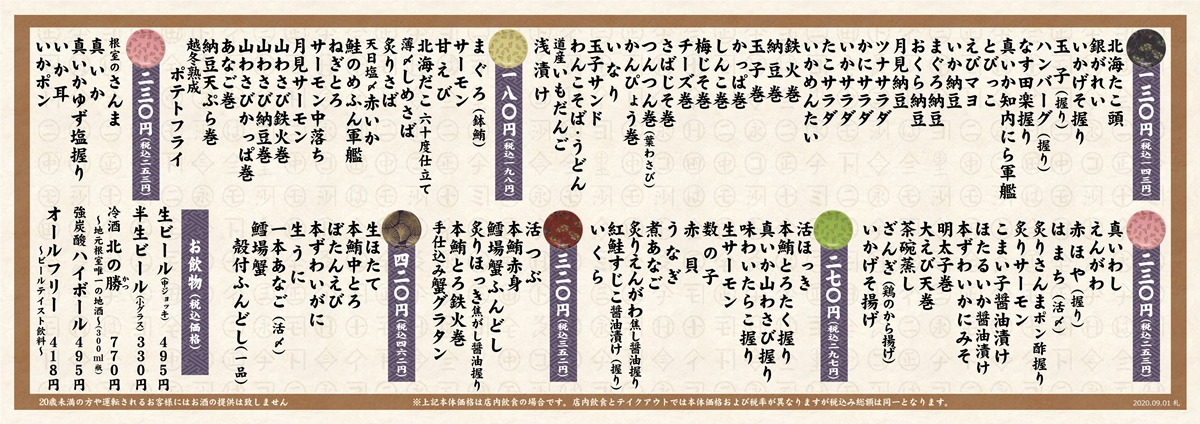 一三〇円(税込一四三円)
北海たこ頭
銀がれい
いかげそ握り
玉子(握り)
ハンバーグ(握り)
なす田楽握り
真いか知内にら軍艦
とびっこ
えびマヨ
いか納豆
まぐろ納豆
おくら納豆
月見納豆
ツナサラダ
かにサラダ
いかサラダ
たこサラダ
いかめんたい
鉄火巻
納豆巻
玉子巻
かっぱ巻
しんこ巻
梅じそ巻
チーズ巻
さばじそ巻
つんつん巻(葉わさび)
かんぴょう巻
いなり
玉子サンド
わんこそば・うどん
道産いもだんご
浅漬け
一八〇円(税込一九八円)
まぐろ(鉢鮪)
サーモン
甘えび
北海だこ六十度仕立て
薄〆しめさば
炙りさば
天日塩〆赤いか
鮭のめふん軍艦
ねぎとろ
サーモン中落ち
月見サーモン
山わさび鉄火巻
山わさび納豆巻
山わさびかっぱ巻
あなご巻
納豆天ぷら巻
越冬熟成
ポテトフライ
二三〇円(税込二五三円)
根室のさんま
真いか
真いかゆず塩握り
いか耳
いかポン
二三〇円(税込二五三円)
真いわし
えんがわ
赤ほや(握り)
はまち(活〆)
炙りさんまポン酢握り
炙りサーモン
こまい子醤油漬け
ほたるいか醤油漬け
本ずわいかにみそ
明太子巻
大えび天巻
茶碗蒸し
ざんぎ(鶏のから揚げ)
いかげそ揚げ
二七〇円(税込二九七円)
活ほっき
本鮪とろたく握り
真いか山わさび握り
味わいたらこ握り
生サーモン
数の子
赤貝
うなぎ
煮あなご
炙りえんがわ焦し醤油握り
紅鮭すじこ醤油漬け(握り)
いくら
三二〇円(税込三五二円)
活つぶ
本鮪赤身
鱈場蟹ふんどし
炙りほっき焦がし醤油握り
本鮪とろ鉄火巻
手仕込み蟹グラタン
四二〇円(税込四六二円)
生ほたて
本鮪中とろ
ぼたんえび
本ずわいがに
生うに
一本あなご(活〆)
鱈場蟹
殻付ふんどし(一品)
お飲物(税込価格)
生ビール(中ジョッキ) 495円
半生ビール(小グラス) 330円
冷酒 北の勝 770円
かつ
~地元根室唯一の地酒~(300ml瓶)
強炭酸ハイボール 495円
オールフリー 418円
~ビールテイスト飲料~
20歳未満の方や運転されるお客様にはお酒の提供は致しません
※上記本体価格は店内飲食の場合です。店内飲食とテイクアウトでは本体価格および税率が異なりますが税込み総額は同一となります。
2020.09.01 札